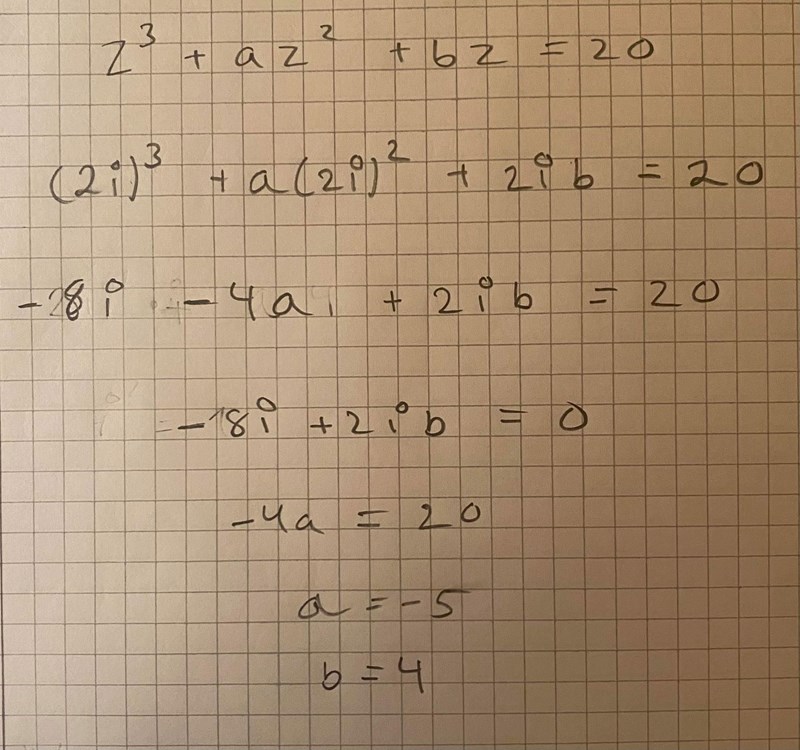 z³ + az² + bz = 20
(2i)³ + a(2i)² + 2ib = 20
-8i - 4a + 2ib = 20
-8i + 2ib = 0
-4a = 20
a = -5
b = 4